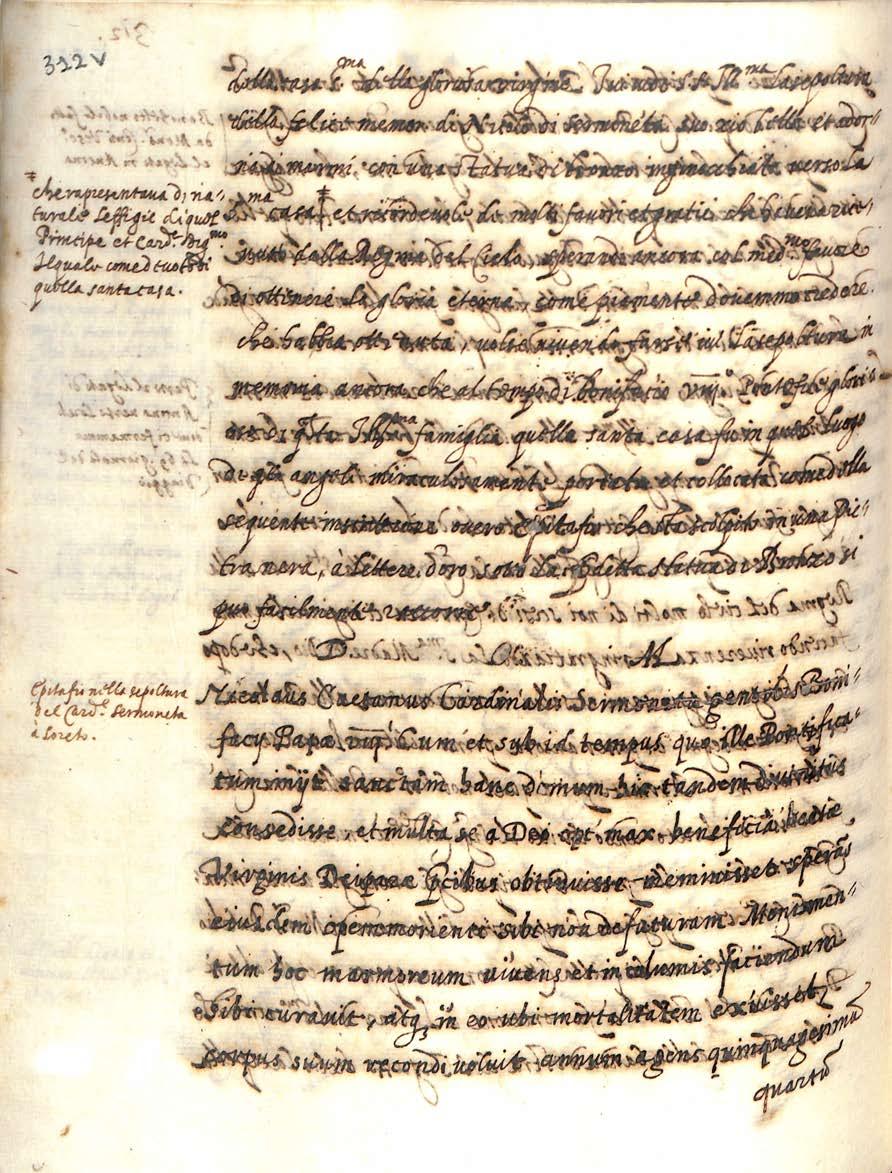 322v
della casa s.ma della gloriosa vergine. Ivi vede S. S. Ill.ma la sepoltura
della felice memor. di Nicolo di Sermoneta suo zio bella et ador-
na di marmi con una statua di bronzo inginocchiata verso la
S.ma casa ‡ et ricordevole de molti favori et gratie che haveva rice-
vuto dalla Regina del Cielo, sperando ancora col med.mo favore
di ottenere la gloria eterna, come piamente dovemmo credere
che habbia ottenuta, volse vivendo farsi ivi la sepoltura in
memoria ancora che al tempo di Bonifacio VIII. Pontefice glori-
oso di q.sta Ill.ma famiglia quella santa casa fu in quel luogo
de gli angeli miraculosamente portata et collocata come dalla
sequente inscrittione overo epitafio che sta scolpito in una pie-
tra nera, à lettere d'oro sotto la detta statua di Bronzo si
puo facilmente raccorre.
D. O. M.
Nicolaus Caetanus Cardinalis Sermoneta gentilis Boni-
facij Papae viij. Cum et sub id tempus quo ille Pontifica-
tum iniit sanctam hanc domum hic tandem divinitus
consedisse, et multa se a Deo opt. max. beneficia beatae
Virginis Deiparae p̄cibus obtinuisse meminisset sperās
eiusdem opem morienti sibi non defuturam Monumen-
tum hoc marmoreum vivens et incolumis faciendum
sibi curavit, atq; in eo ubi mortalitatem exuisset
corpus suum recondi voluit annum agens quinquagesimū
quartū
‡
che rapresentava di na-
turale l'effigie di quel
Principe et Card.e Dig.mo
Il quale come devoto di
quella santa casa.
Epitafio nella sepoltura
del Card.e Sermoneta
à Loreto.